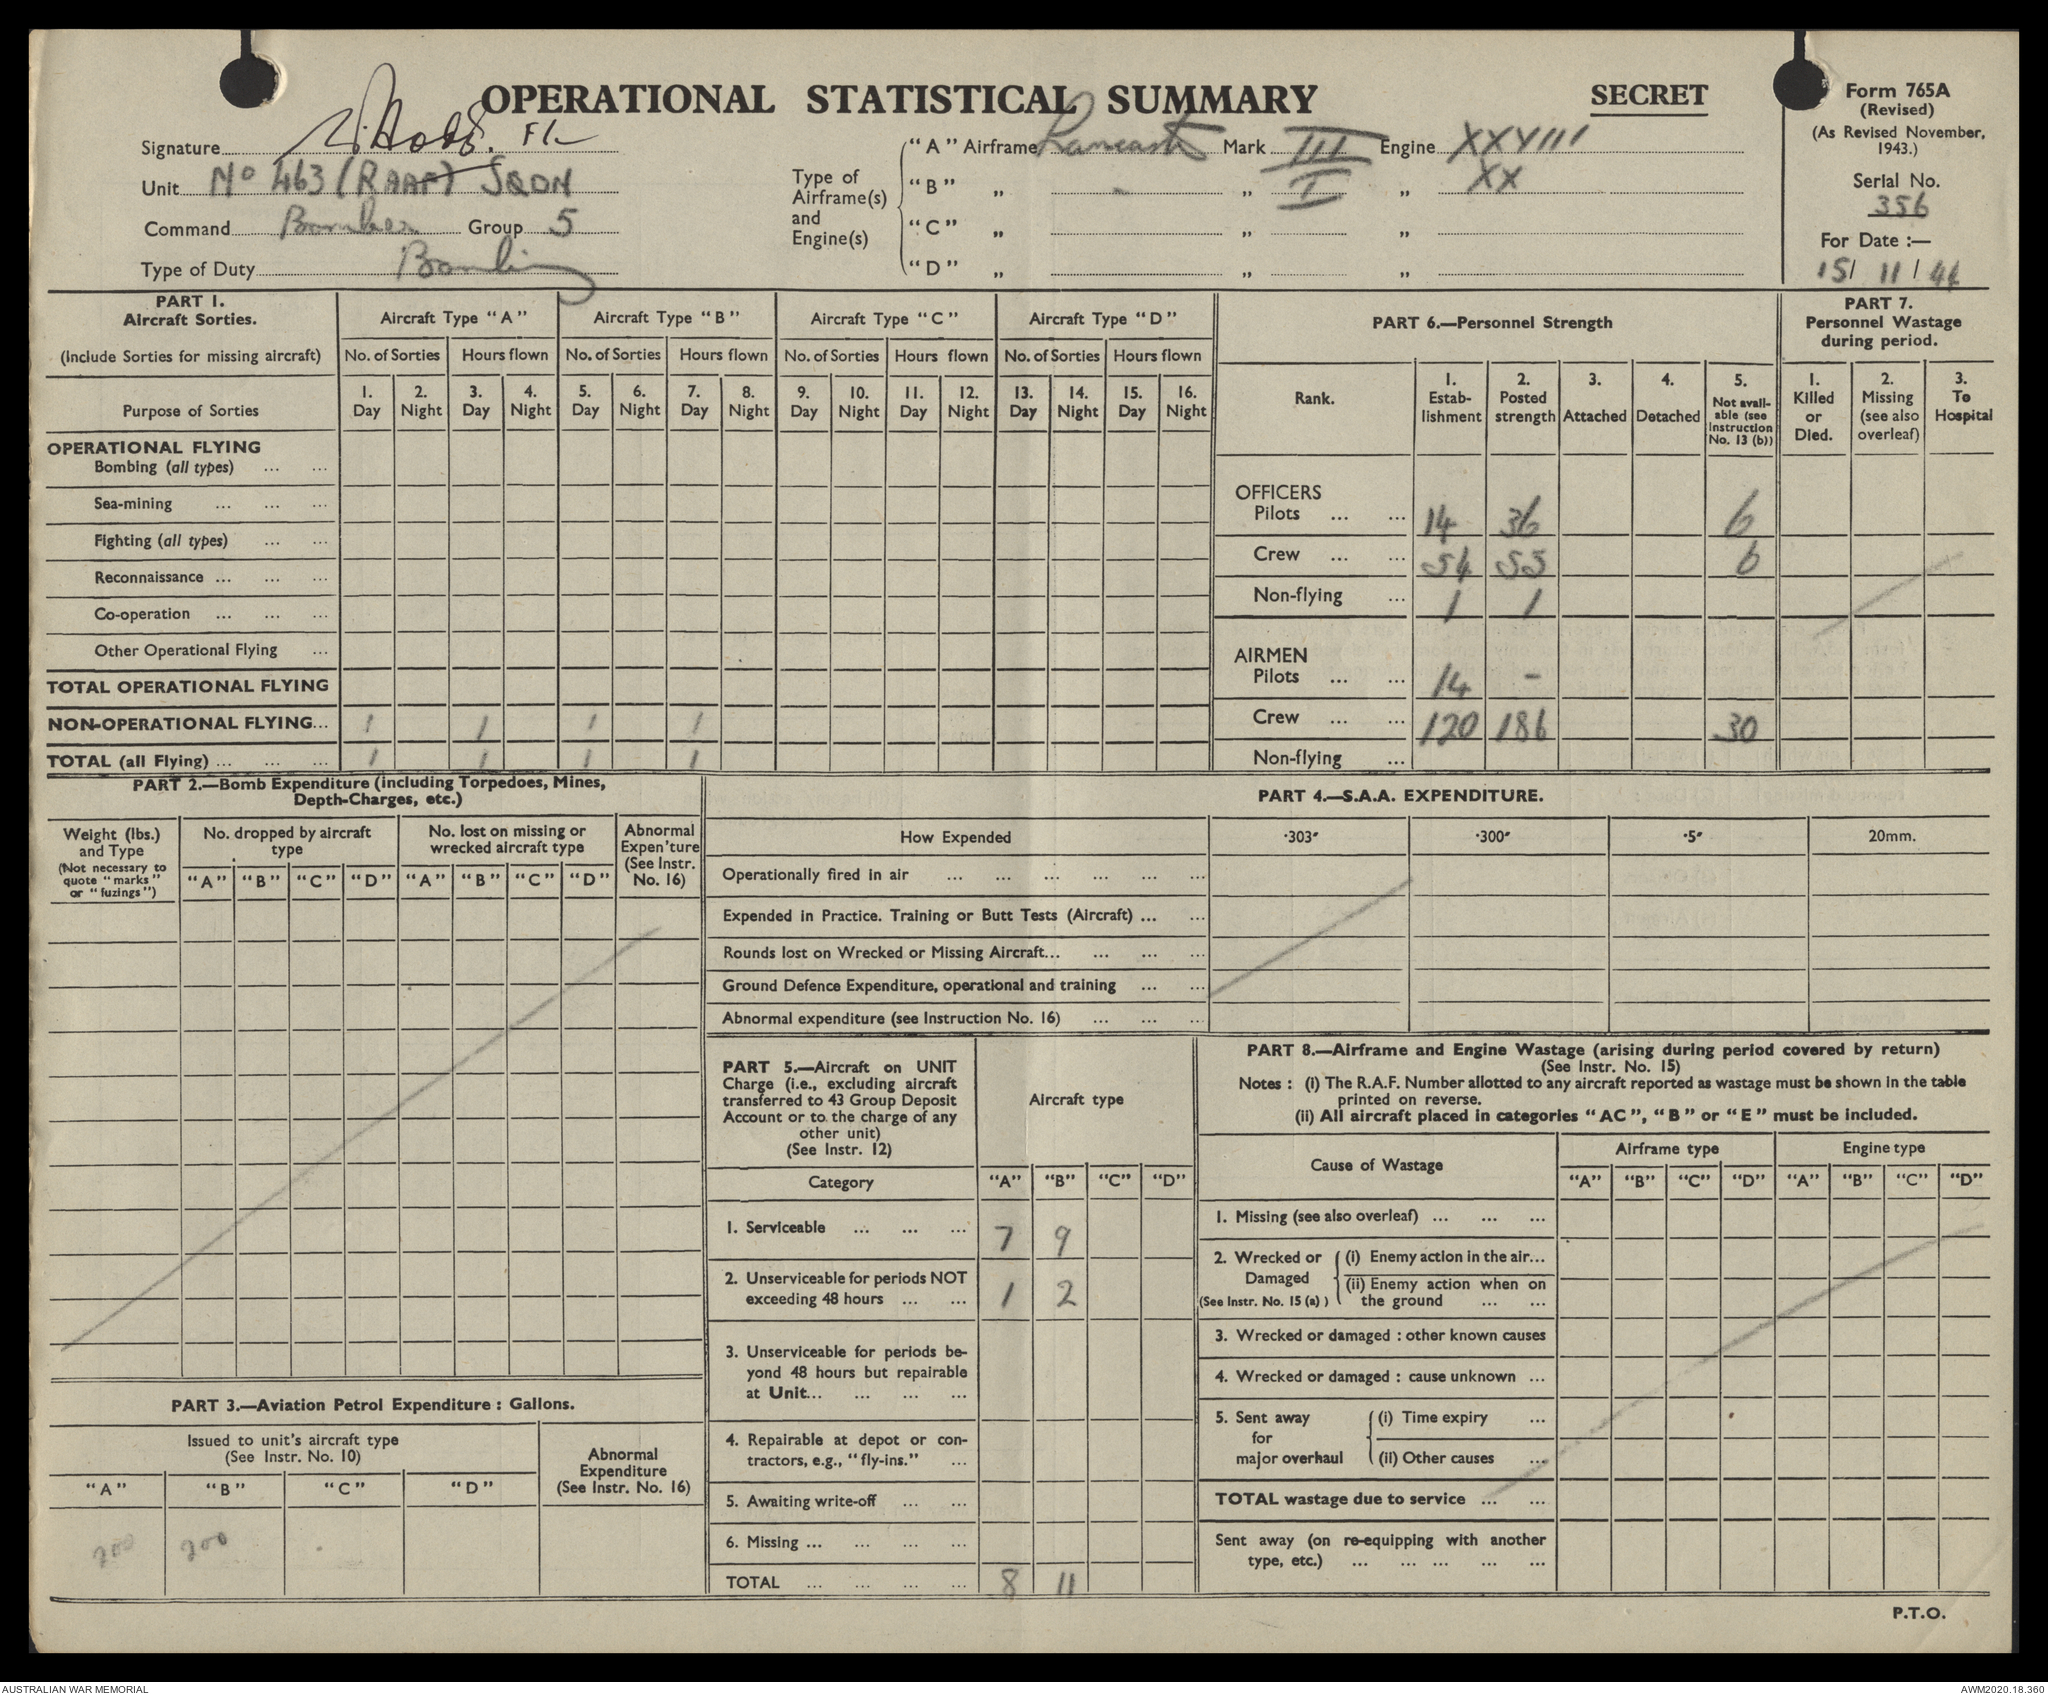 OPERATIONAL STATISTICAL SUMMARY
SECRET
Form 765A
(Revised)
(As Revised November, 1943.)
Serial No.
356
For Date :—
15/ 11 / 44
Signature
Unit No 463 (RAAF) SQDN
Command Bomber Group 5
Type of Duty Bombing
Type of Airframe(s) and Engine(s)
"A" Airframe Lancaster Mark III Engine XXVIII
"B" „ - „ I „ XX
"C" „ „ „
"D" „ „ „
PART 1.
Aircraft Sorties.
(Include Sorties for missing aircraft)
Aircraft Type "A" Aircraft Type "B" Aircraft Type "C" Aircraft Type "D"
No. of Sorties Hours flown No. of Sorties Hours flown No. of Sorties Hours flown No. of Sorties Hours flown
Purpose of Sorties
1. Day 2. Night 3. Day 4. Night 5. Day 6. Night 7. Day 8. Night 9. Day 10. Night 11. Day 12. Night 13. Day 14. Night 15. Day 16. Night
OPERATIONAL FLYING
Bombing (all types) ... ...
Sea-mining ... ... ...
Fighting (all types) ... ...
Reconnaissance ... ... ...
Co-operation ... ... ...
Other Operational Flying ...
TOTAL OPERATIONAL FLYING
NON-OPERATIONAL FLYING... 1 1 1 1
TOTAL (all Flying) ... ... ... 1 1 1 1
PART 6.—Personnel Strength
Rank.
1. Establishment
2. Posted strength
3. Attached
4. Detached
5. Not available (see Instruction No. 13 (b))
OFFICERS
Pilots ... ... 14 36 6
Crew ... ... 54 55 6
Non-flying ... 1 1
AIRMEN
Pilots ... ... 14 -
Crew ... ... 120 186 30
Non-flying ...
PART 7.
Personnel Wastage during period.
1. Killed or Died.
2. Missing (see also overleaf)
3. To Hospital
PART 2.—Bomb Expenditure (including Torpedoes, Mines,
Depth-Charges, etc.)
Weight (lbs.) and Type
(Not necessary to quote "marks" or "fuzings")
No. dropped by aircraft type
No. lost on missing or wrecked aircraft type
Abnormal Expen'ture (See Instr. No. 16)
"A" "B" "C" "D" "A" "B" "C" "D"
PART 3.—Aviation Petrol Expenditure : Gallons.
Issued to unit's aircraft type
(See Instr. No. 10)
Abnormal Expenditure
(See Instr. No. 16)
"A" "B" "C" "D"
200 200
PART 4.—S.A.A. EXPENDITURE.
How Expended ·303″ ·300″ ·5″ 20mm.
Operationally fired in air ... ... ... ... ... ...
Expended in Practice. Training or Butt Tests (Aircraft) ... ...
Rounds lost on Wrecked or Missing Aircraft... ... ... ...
Ground Defence Expenditure, operational and training ... ...
Abnormal expenditure (see Instruction No. 16) ... ... ...
PART 5.—Aircraft on UNIT
Charge (i.e., excluding aircraft
transferred to 43 Group Deposit
Account or to the charge of any
other unit)
(See Instr. 12)
Aircraft type
Category "A" "B" "C" "D"
1. Serviceable ... ... ... 7 9
2. Unserviceable for periods NOT
exceeding 48 hours ... ... 1 2
3. Unserviceable for periods be-
yond 48 hours but repairable
at Unit... ... ... ...
4. Repairable at depot or con-
tractors, e.g., "fly-ins." ...
5. Awaiting write-off ... ...
6. Missing ... ... ... ...
TOTAL ... ... ... ... 8 11
PART 8.—Airframe and Engine Wastage (arising during period covered by return)
(See Instr. No. 15)
Notes : (i) The R.A.F. Number allotted to any aircraft reported as wastage must be shown in the table
printed on reverse.
(ii) All aircraft placed in categories "AC", "B" or "E" must be included.
Cause of Wastage Airframe type Engine type
"A" "B" "C" "D" "A" "B" "C" "D"
1. Missing (see also overleaf) ... ... ...
2. Wrecked or Damaged (See Instr. No. 15 (a) )
(i) Enemy action in the air...
(ii) Enemy action when on
the ground ... ...
3. Wrecked or damaged : other known causes
4. Wrecked or damaged : cause unknown ...
5. Sent away for major overhaul
(i) Time expiry ...
(ii) Other causes ...
TOTAL wastage due to service ... ...
Sent away (on re-equipping with another
type, etc.) ... ... ... ... ...
P.T.O.
AUSTRALIAN WAR MEMORIAL
AWM2020.18.360